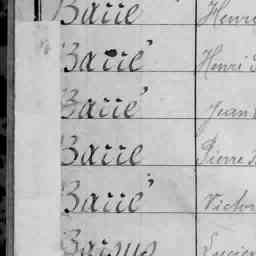 Barré Henri
Barré Henri
Barré Jean
Barré Pierre
Barré Victor
Barsus Lucien